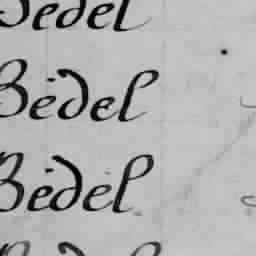 Bedel
Bedel
Bedel